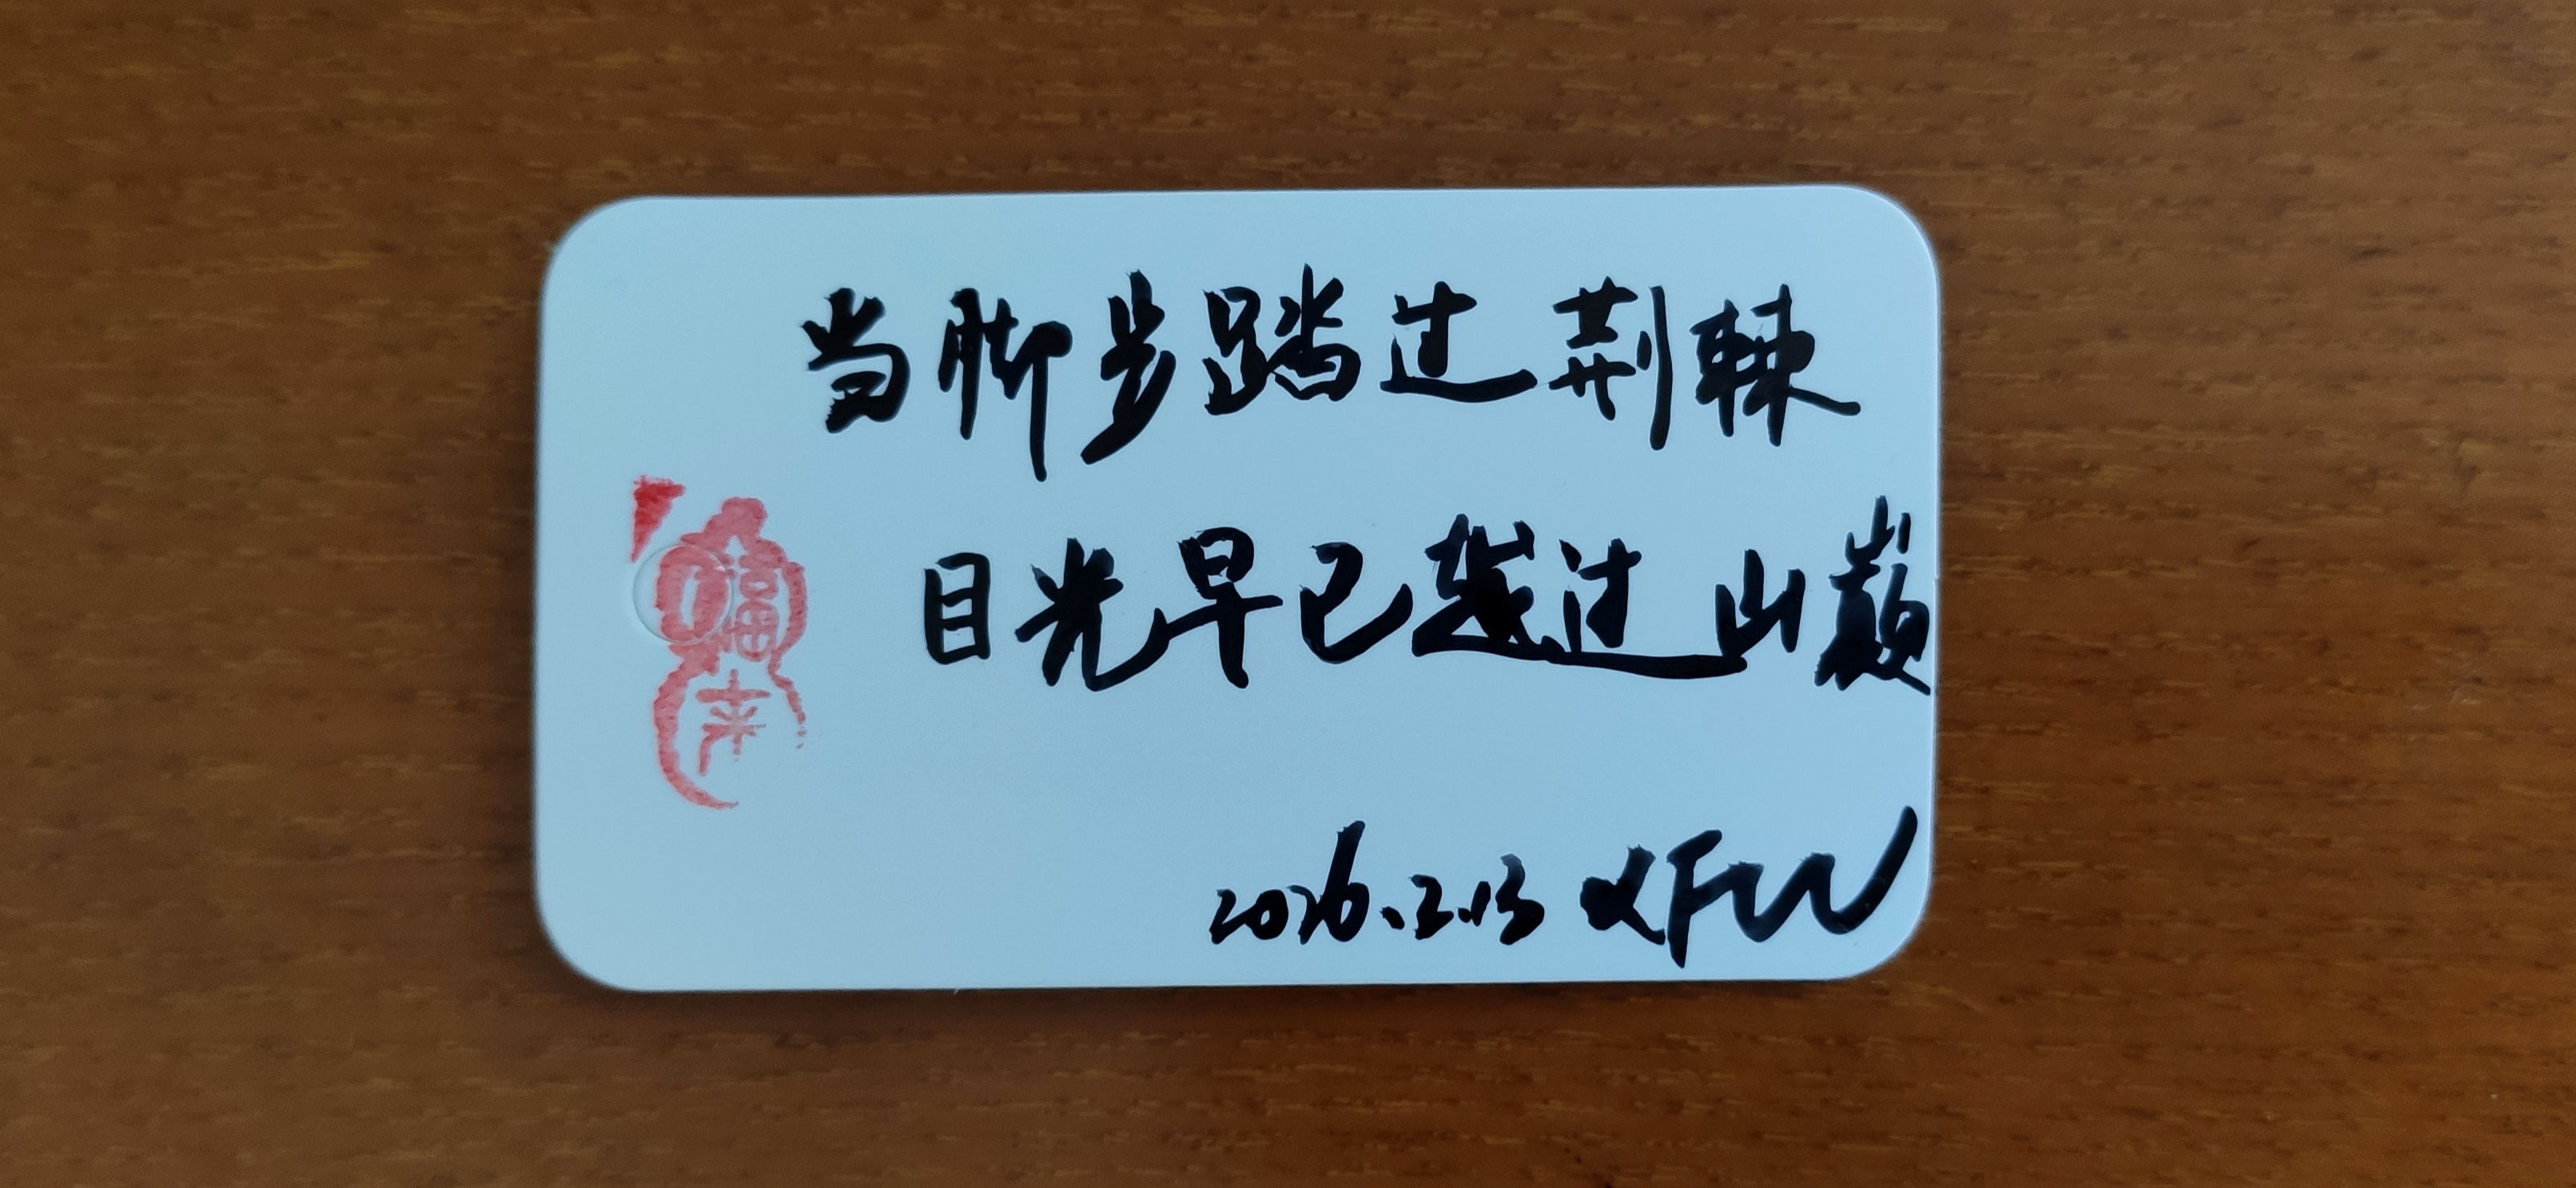 当脚步踏过荆棘
目光早已越过山巅
福来
2026.2.13 XFW